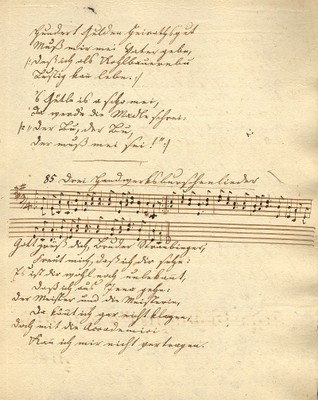 Hundert Gulden Heirathsgut
Muß mir mei Vater gebe,
/: Daß ich als Kohlbauernbu
Lustig kan leben. :/
's Gütle is a scho mei,
Da werde die Madle schrei.
/: der Bu, der Bu,
der muß mei sei!" :/
85. Drei Handwerksburschenlieder
Gott grüß dich, Bruder Straubinger,
Freut mich, daß ich dir sehe:
Es ist dir wohl noch unbekannt,
Daß ich aus Jena gehe:
der Meister und die Meisterin,
Da kont ich gar nicht klagen,
doch mit die
Kan ich mir nicht vertragen.